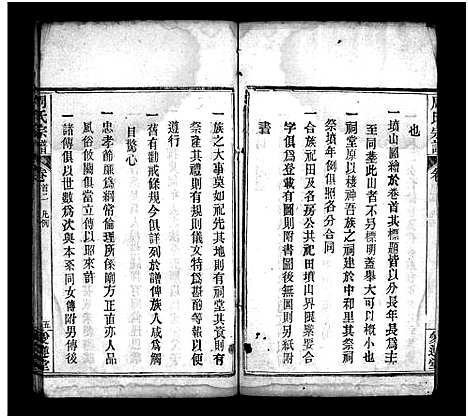 周氏宗譜
卷
也
一墳山圖繪於卷首其標題皆以分長年長爲主
至同塟此山者不另標明蓋舉大可以槪小也
一祠堂原以棲神吾族之祠建於中和里其祭祠
祭墳年例俱照各分合同
一合族祀田及各房公共祀田墳山界限槩契合
字俱爲登載有圖則附書圖後無圖則另紙附
書
一族之大事莫如祀先其地則有祠堂其資則有
祭產其禮則有規則儀文特爲甚酌等報以便
遵行
一舊有勸戒條規今俱詳列於譜俾族人咸爲觸
目驚心
一忠孝節廉爲綱常倫理所係前方正直亦人品
風俗攸關俱當立傳以昭來許
一諸傳俱以世爲次與本來同女傳附男傳後
周氏宗譜
卷首二 凡例
五
愛蓮堂